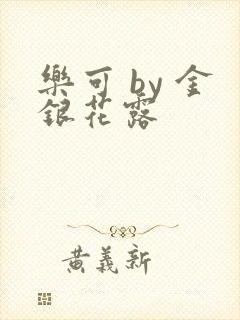 樂可 by 金
銀花露
黃義新